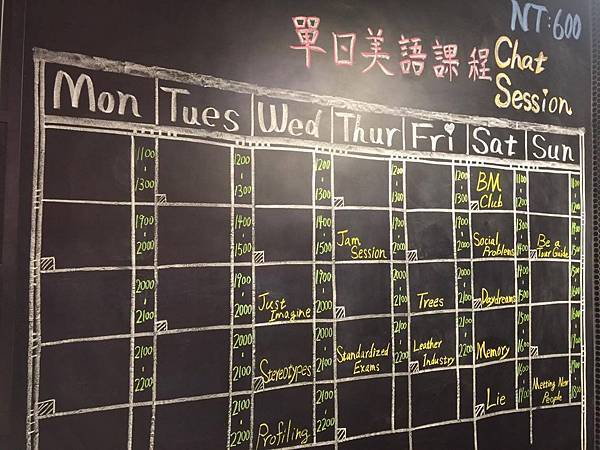 NT:600
單日美語課程 Chat Session
Mon Tues Wed Thur Fri Sat Sun
1100 - 1300
1200 - 1300
1200 - 1300
1200 - 1300
1200 - 1300
BM Club
1100 - 1200
1900 - 2000
1400 - 1500
1400 - 1500
Jam Session
1900 - 2000
1900 - 2000
Social Problems
Be a Tour Guide
2000 - 2100
1900 - 2000
Just Imagine
1900 - 2000
2000 - 2100
Trees
2000 - 2100
Daydreams
2100 - 2200
2000 - 2100
Stereotypes
2000 - 2100
Standardized Exams
2100 - 2200
Leather Industry
2100 - 2200
Memory
2100 - 2200
Profiling
2100 - 2200
Lie
Meeting New People